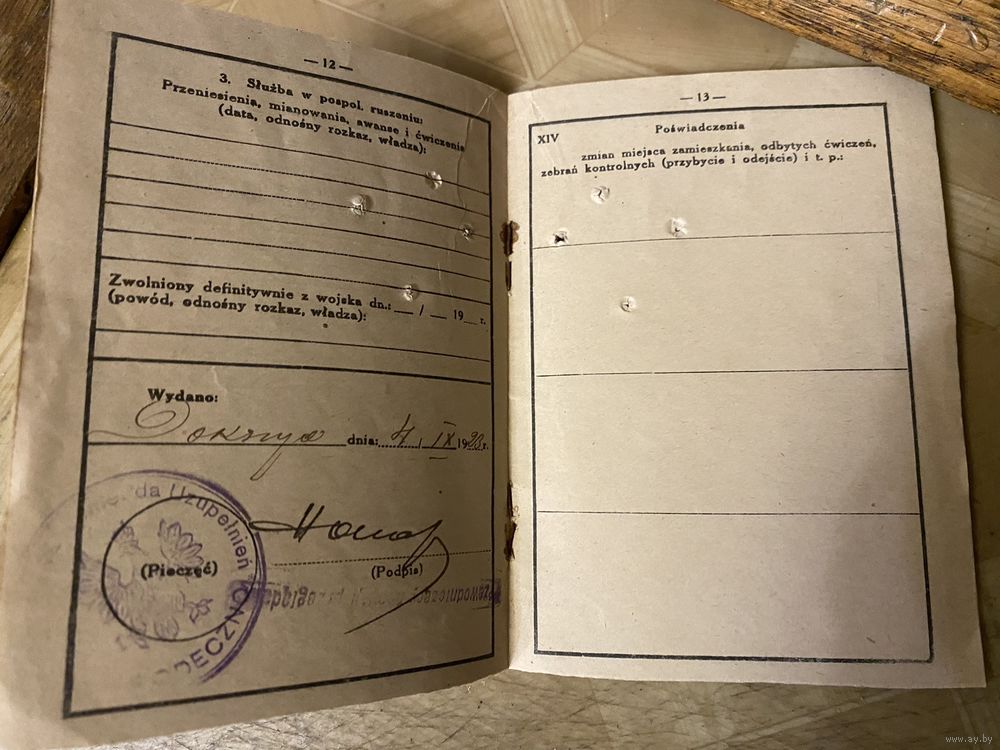 — 12 —
3. Służba w pospol. ruszeniu:
Przeniesienia, mianowania, awanse i ćwiczenia
(data, odnośny rozkaz, władza):
Zwolniony definitywnie z wojska dn.: __ / __ 19 __ r.
(powód, odnośny rozkaz, władza):
Wydano:
dnia: 4 / IX 1923 r.
da Uzupełnień
(Pieczęć)
(Podpis)
— 13 —
XIV Poświadczenia
zmian miejsca zamieszkania, odbytych ćwiczeń,
zebrań kontrolnych (przybycie i odejście) i t. p.:
www.ay.by